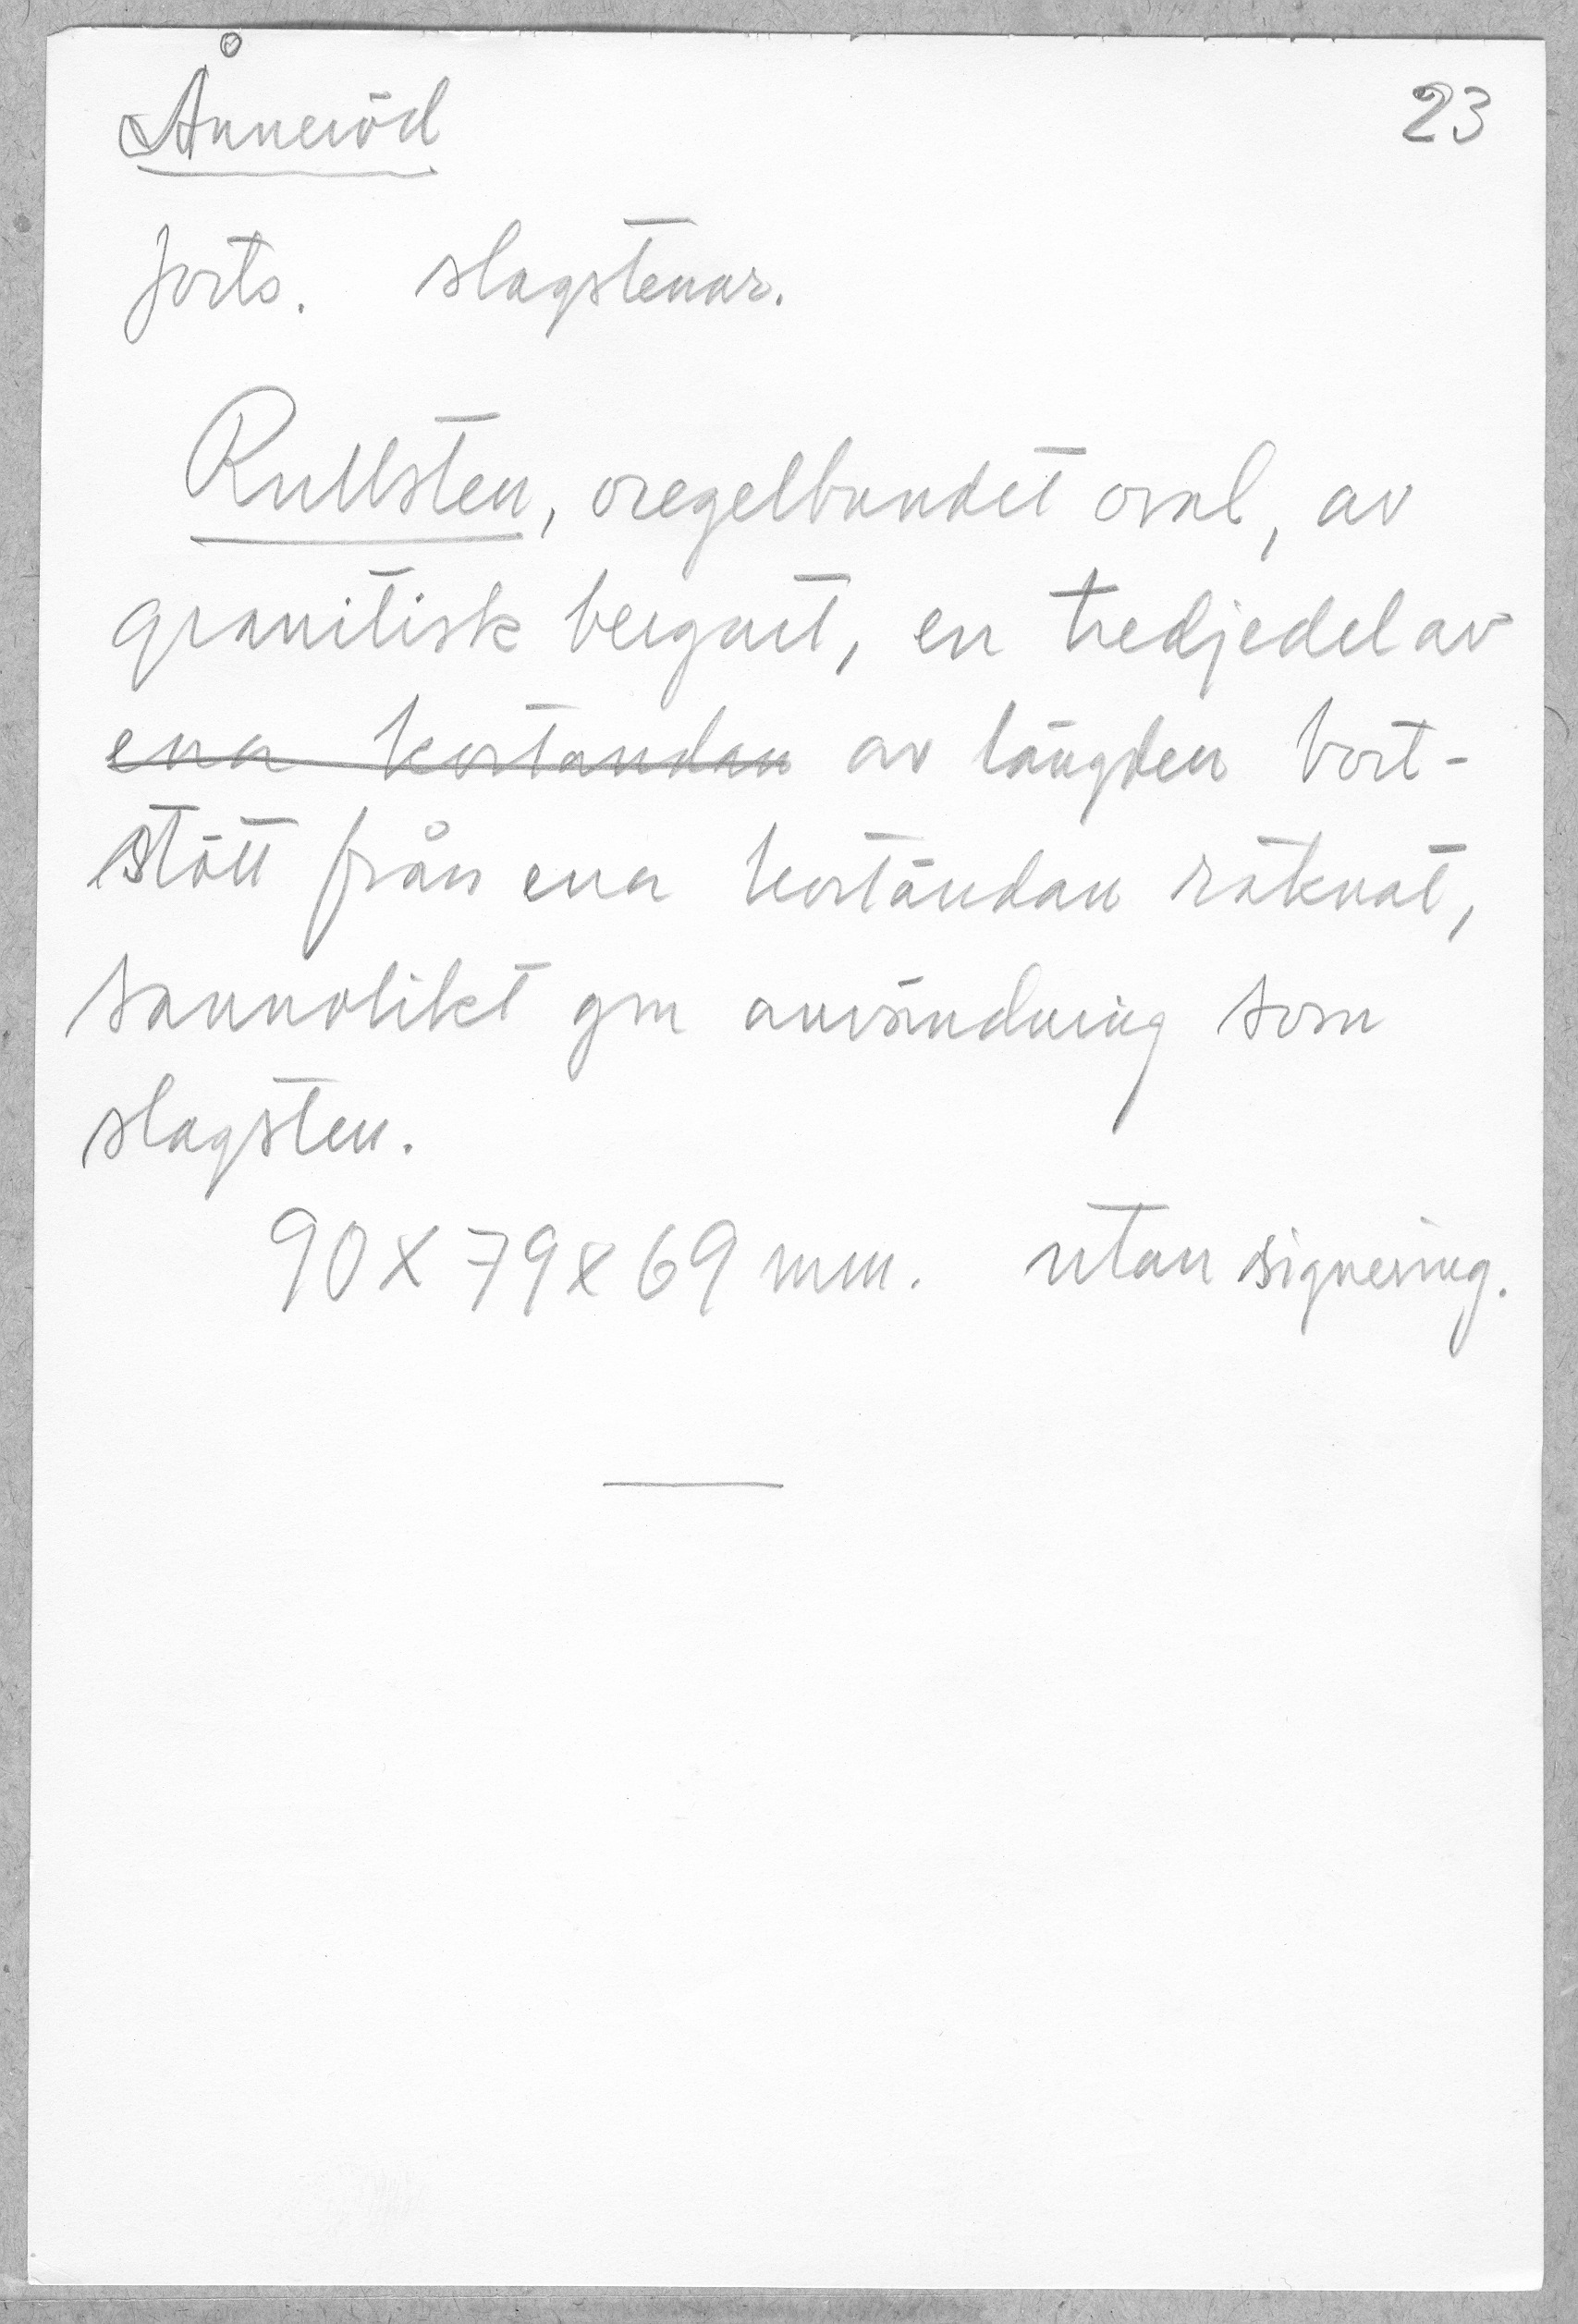 Ånneröd 23
forts. slagstenar.
Rullsten, oregelbundet oval, av
granitisk bergart, en tredjedel av
ena kortändan av längden bort-
stött från ena kortändan räknat,
sannolikt gm användning som
slagsten.
90 x 79 x 69 mm. utan signering.